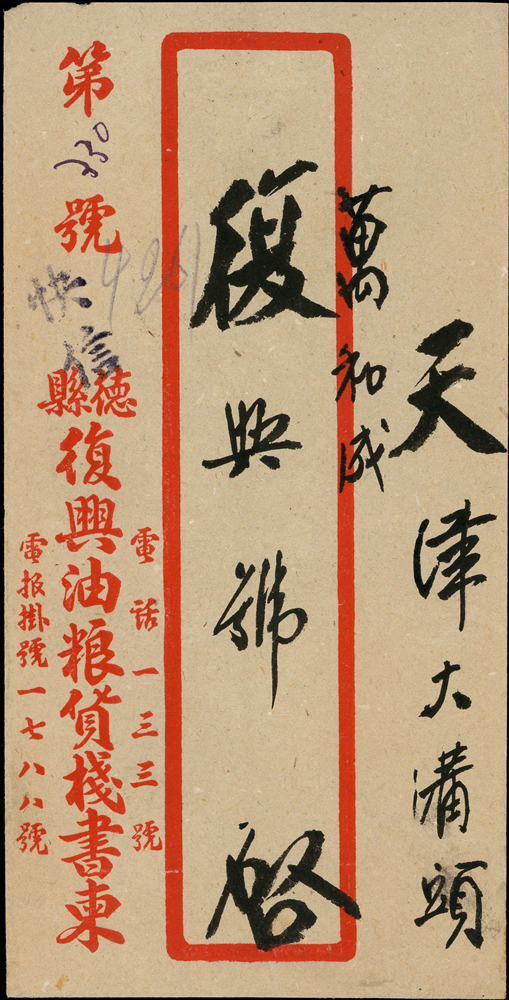 天津大溝頭
萬和成
復興號 啓
電話一三三號
第230號
4261
快信
德縣
復興油粮貨棧書柬
電报掛號一七八八號